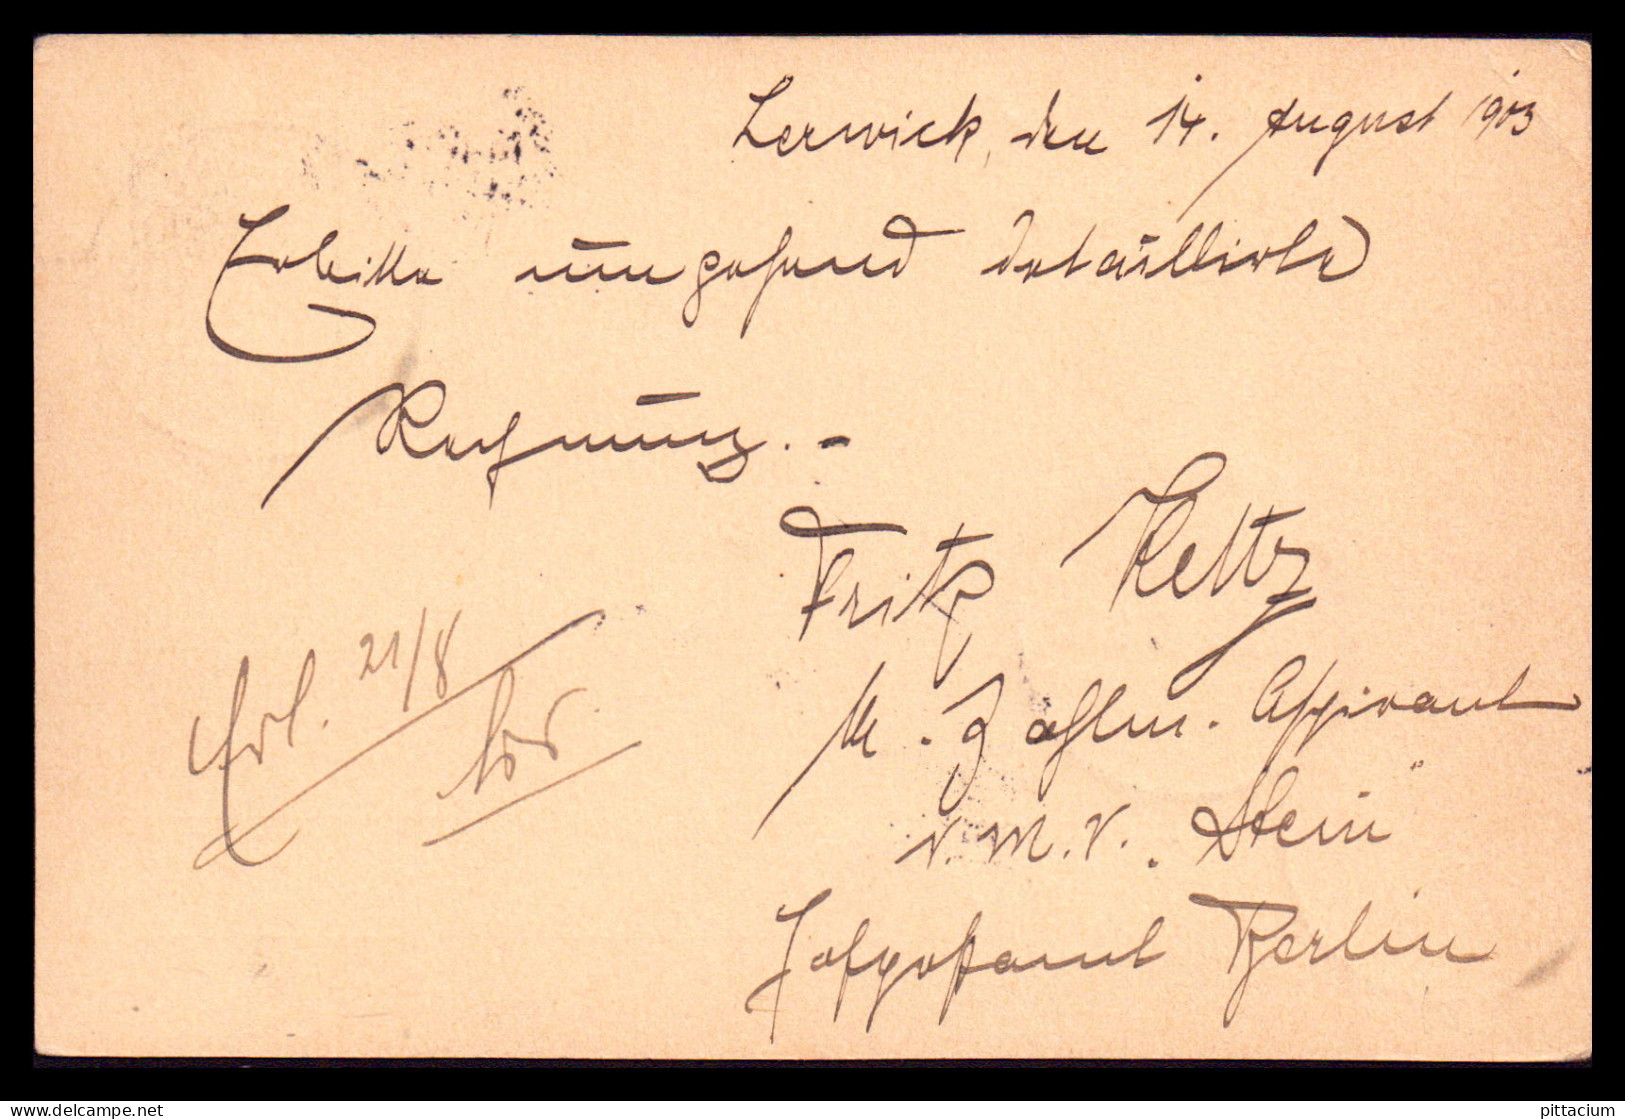 Lerwick, den 14. August 1903
Erbitte umgehend detaillierte
Rechnung. -
Fritz Keltz
M. Zahlm. Aspirant
S. M. S. "Stein"
Hofpostamt Berlin
Erl. 21/8
delcampe.net
pittacium